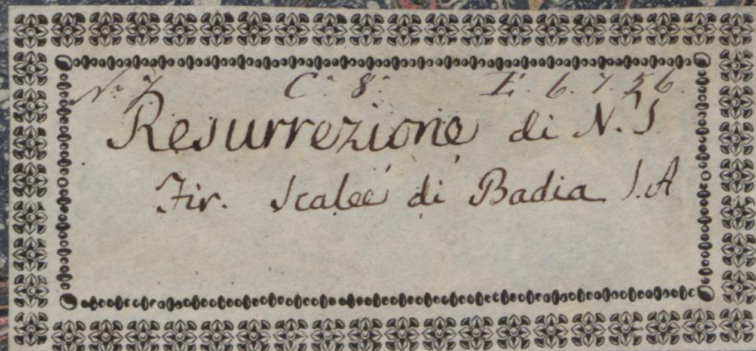 N.º 7 C.ª 8.ª E. 6. 7. 56.
Resurrezione di N. S
Fir. Scalee di Badia S. A